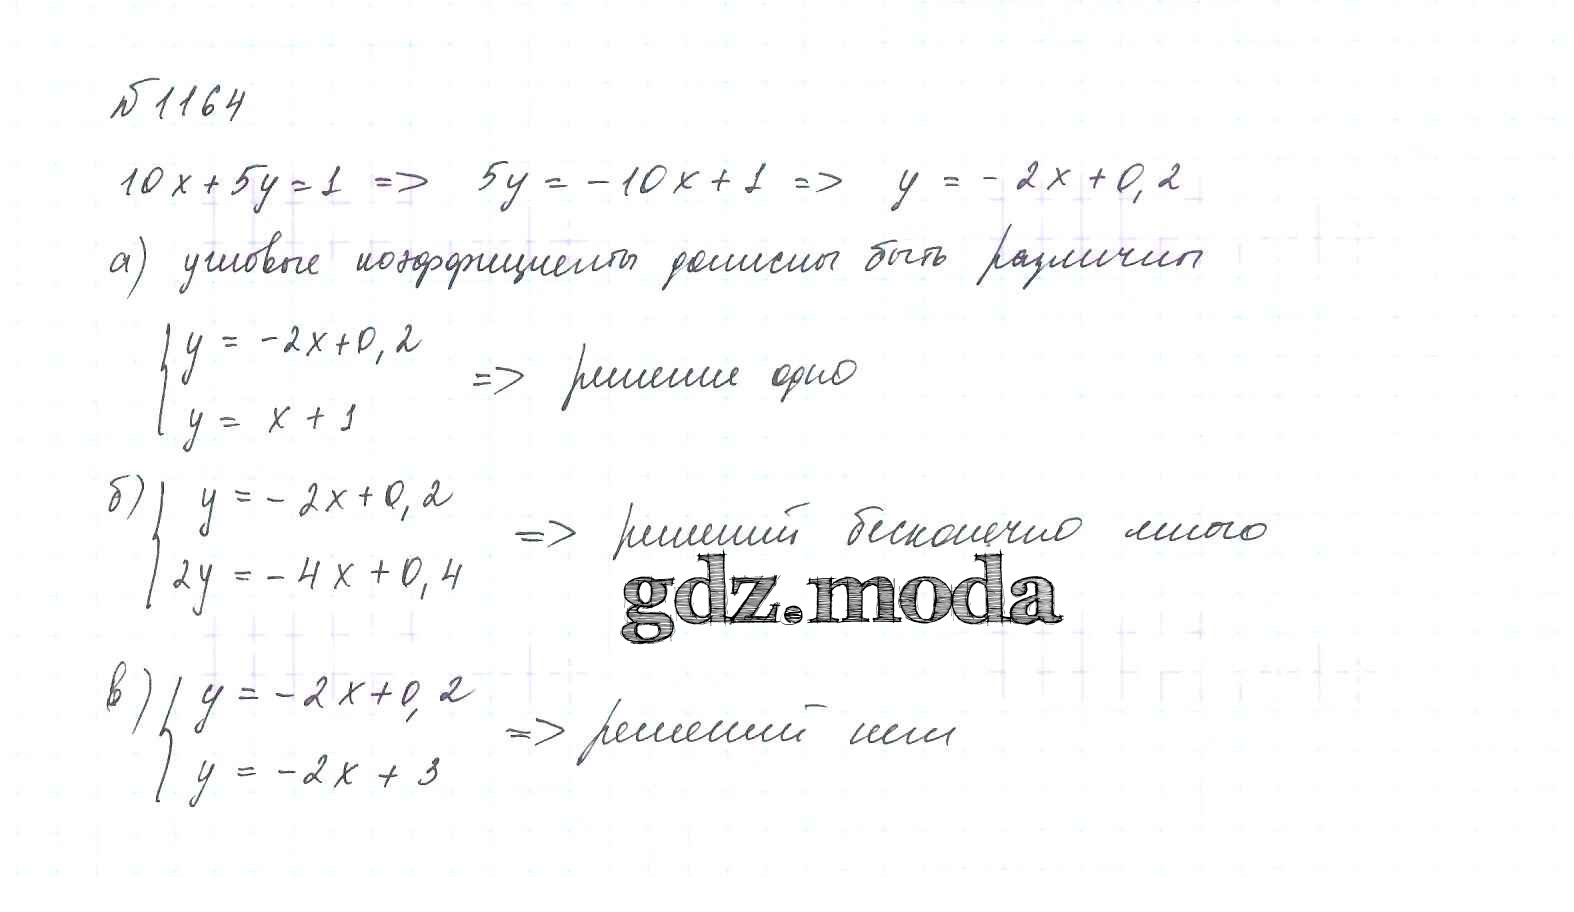 №1164
10x + 5y = 1 => 5y = -10x + 1 => y = -2x + 0,2
а) угловые коэффициенты должны быть различны
{ y = -2x + 0,2
=> решение одно
y = x + 1
б) { y = -2x + 0,2
=> решений бесконечно много
2y = -4x + 0,4
gdz.moda
в) { y = -2x + 0,2
=> решений нет
y = -2x + 3